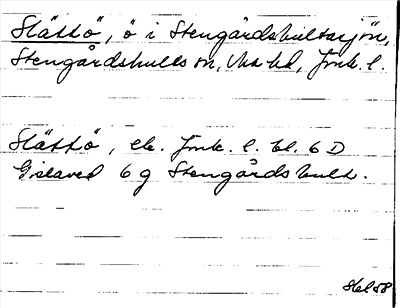 Slättö, ö i Stengårdshultasjön,
Stengårdshults sn, Mo hd, Jönk. l.
Slättö, ek. Jönk. l. bl. 6 D
Gislaved 6 g Stengårdshult.